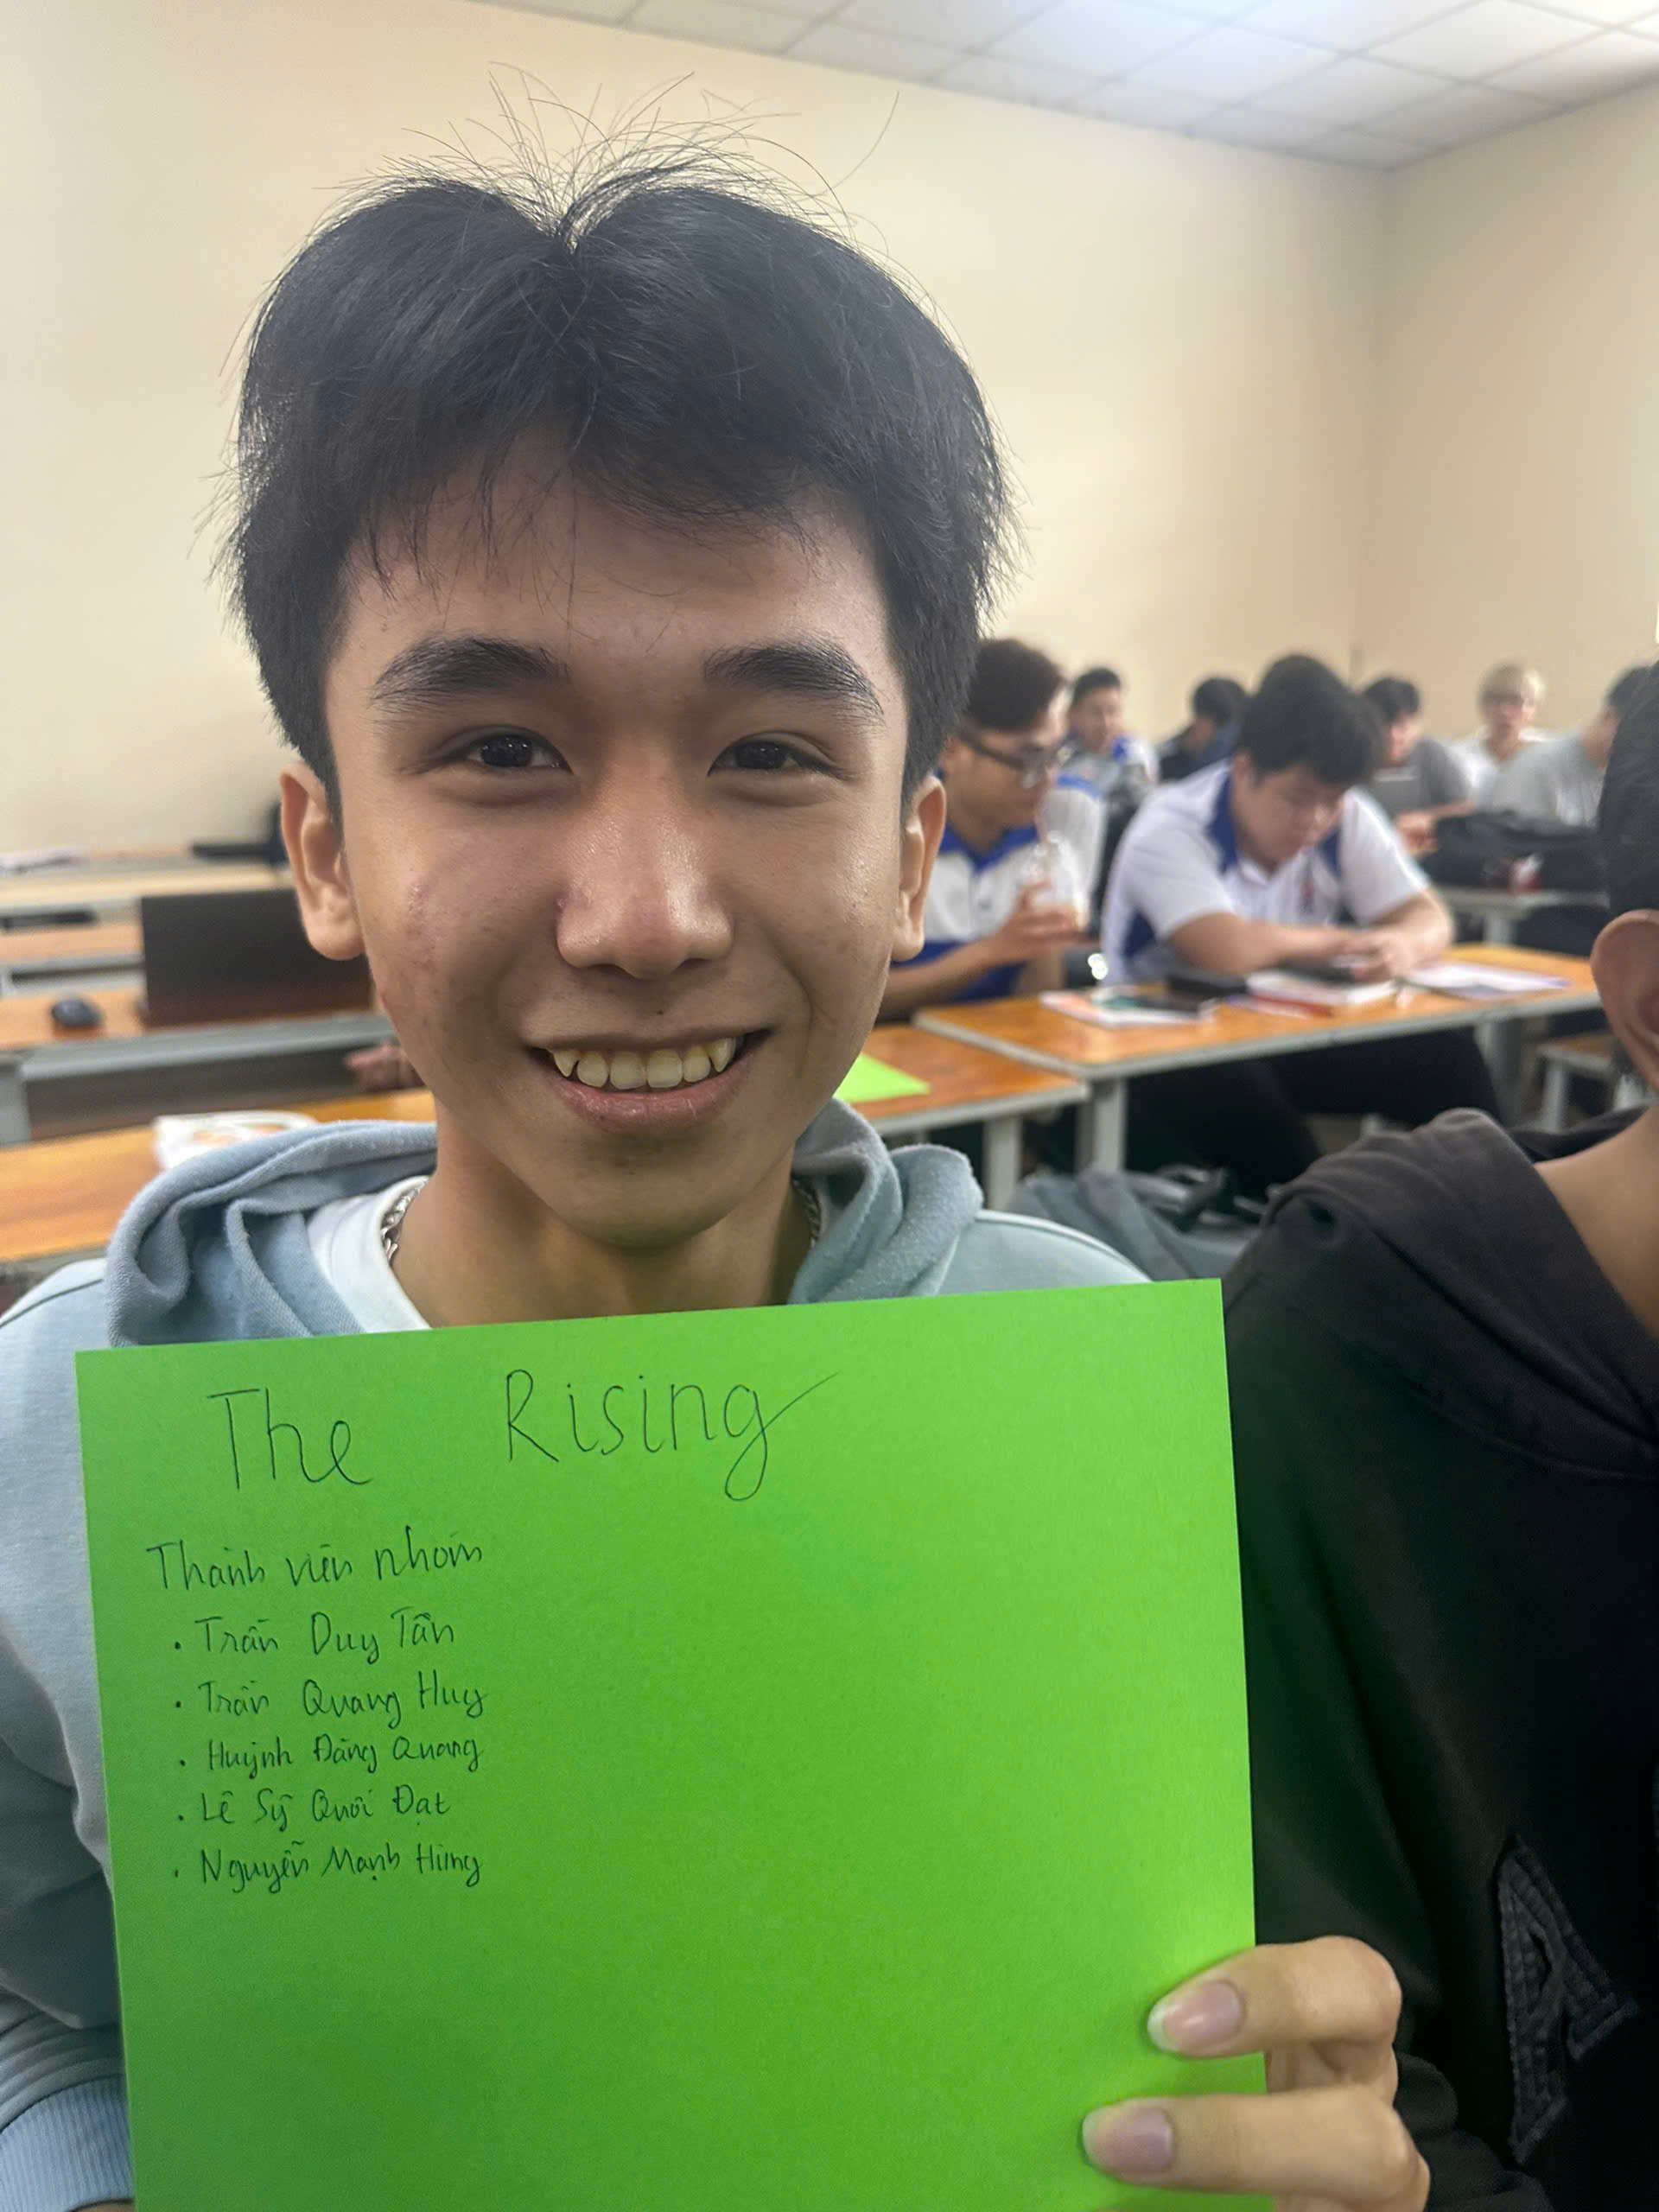 The Rising
Thành viên nhóm
• Trần Duy Tân
• Trần Quang Huy
• Huỳnh Đăng Quang
• Lê Sỹ Quới Đạt
• Nguyễn Mạnh Hùng